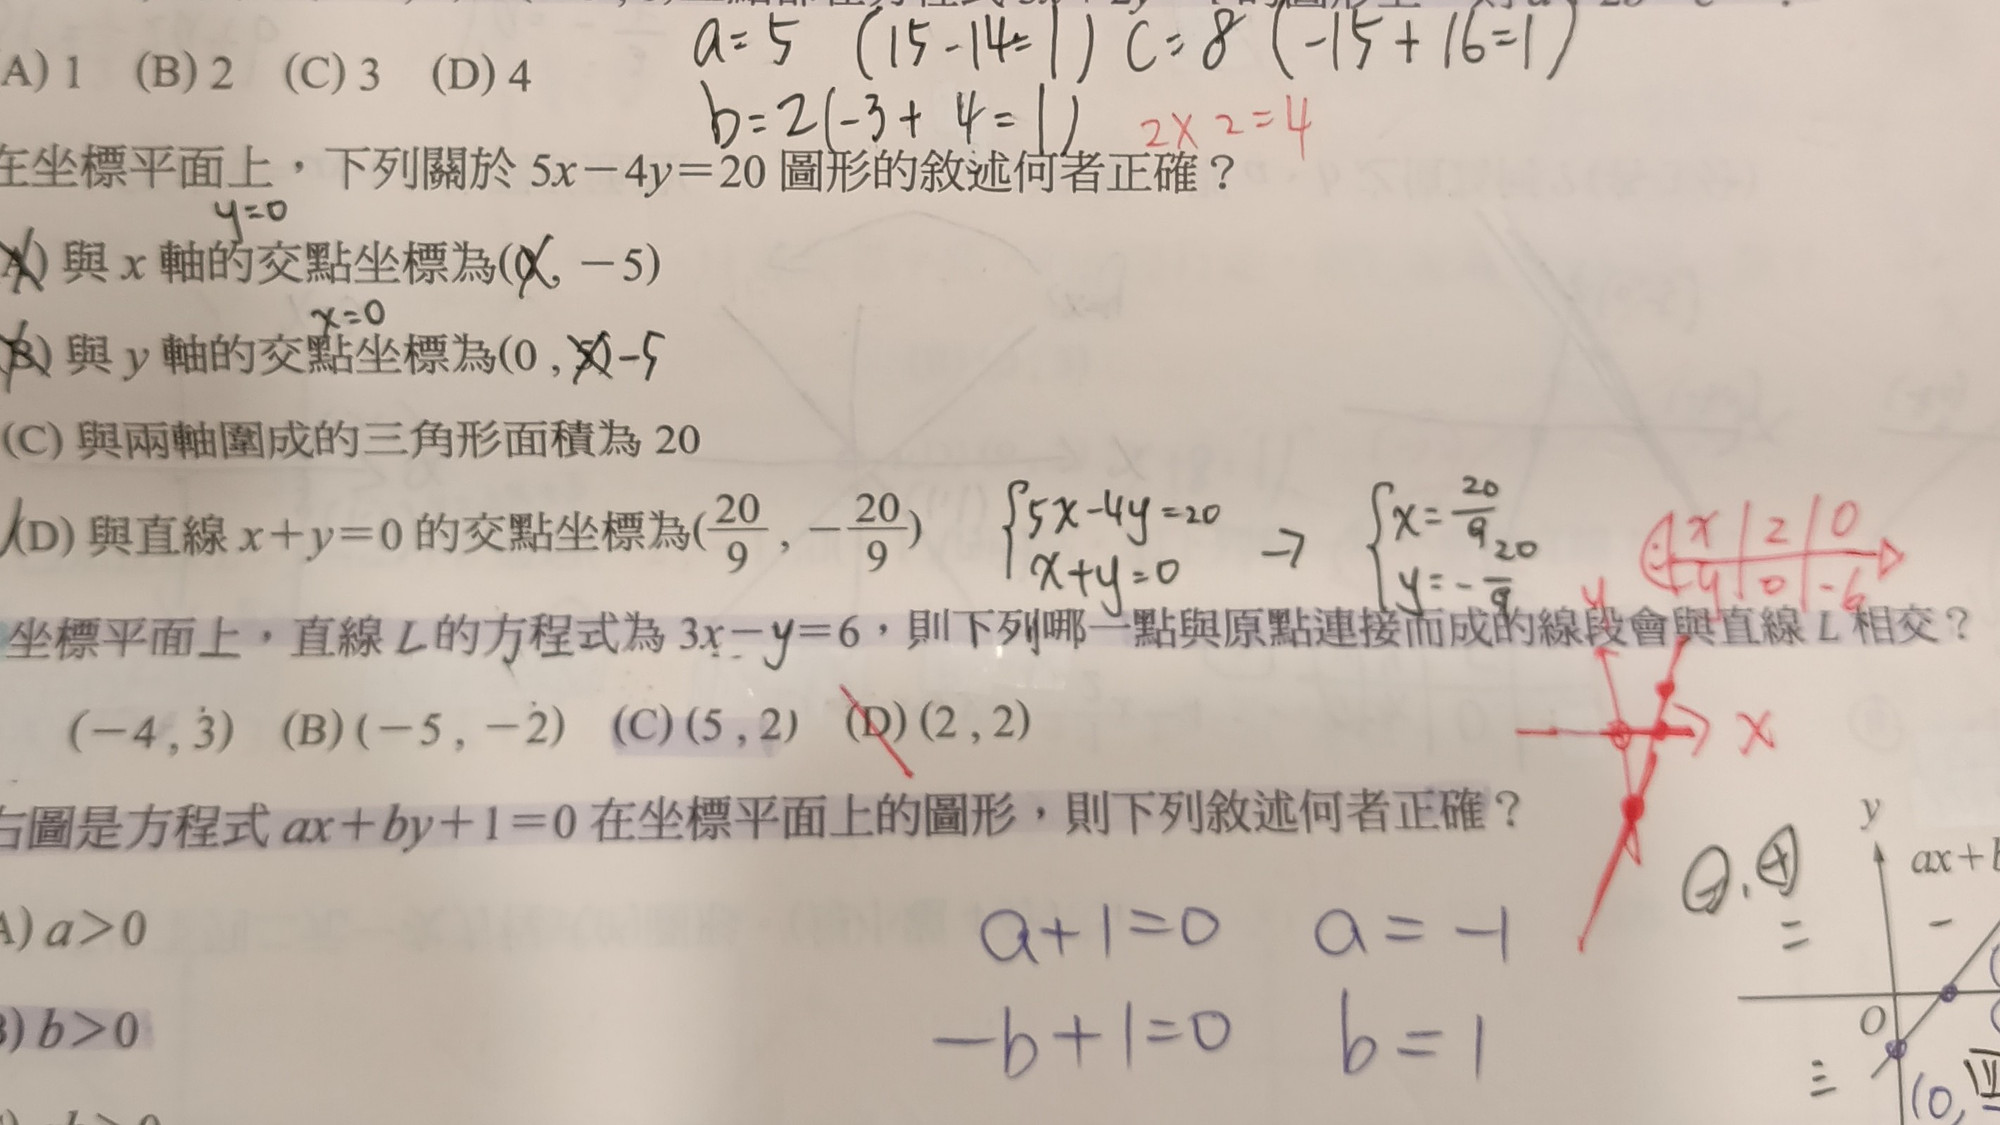 a=5 (15-14=1) c=8 (-15+16=1)
A) 1 (B) 2 (C) 3 (D) 4
b=2(-3+4=1) 2×2=4
在坐標平面上，下列關於 5x－4y＝20 圖形的敘述何者正確？
y=0
A) 與 x 軸的交點坐標為(0, －5)
x=0
B) 與 y 軸的交點坐標為(0 , 5)-5
(C) 與兩軸圍成的三角形面積為 20
(D) 與直線 x＋y＝0 的交點坐標為(20/9 , －20/9) {5x-4y=20 x+y=0 → {x=20/9 y=-20/9
x 2 0
y 0 -6
坐標平面上，直線 L 的方程式為 3x－y＝6，則下列哪一點與原點連接而成的線段會與直線 L 相交？
y
(－4 , 3) (B) (－5 , －2) (C) (5 , 2) (D) (2 , 2) x
右圖是方程式 ax＋by＋1＝0 在坐標平面上的圖形，則下列敘述何者正確？
y
ax＋b
A) a＞0 a+1=0 a=-1
二 一
B) b＞0 -b+1=0 b=1
O
三 四
(0,